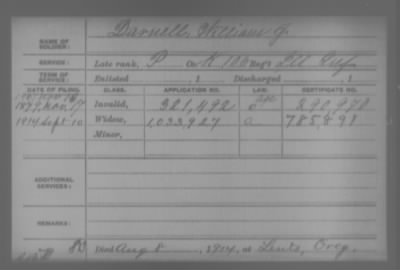 NAME OF SOLDIER: Darnell, William J.
SERVICE: Late rank, P Co. K, 106 Reg't Ill Inf.
TERM OF SERVICE: Enlisted , 1 Discharged , 1
DATE OF FILING. CLASS. APPLICATION NO. LAW. CERTIFICATE NO.
1879, Nov. 17 Invalid, 321,492 290,970
1914 Sept 10 Widow, 1,033,927 785,891
Minor,
ADDITIONAL SERVICES:
REMARKS:
Died Aug 8, 1914, at Lents, Oreg.